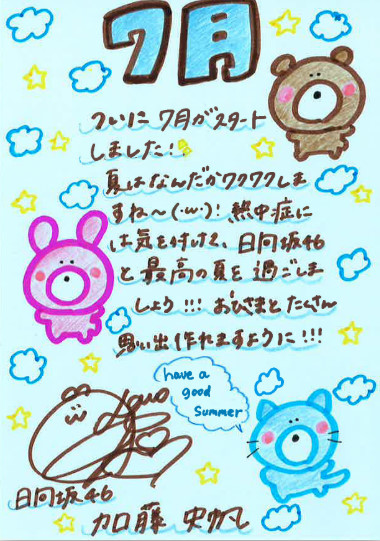 7月
ついに 7月がスタート
しました!
夏はなんだかワクワクしま
すね〜(･ω･)! 熱中症に
は気を付けて、日向坂46
と最高の夏を過ごしま
しょう!!! おひさまとたくさん
思い出作れますように!!!
have a
good
Summer
日向坂46
加藤 史帆